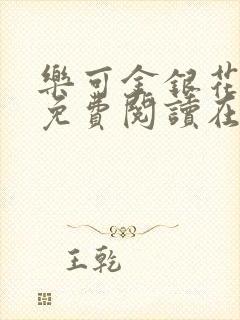 樂可金銀花
免費閱讀在
王乾